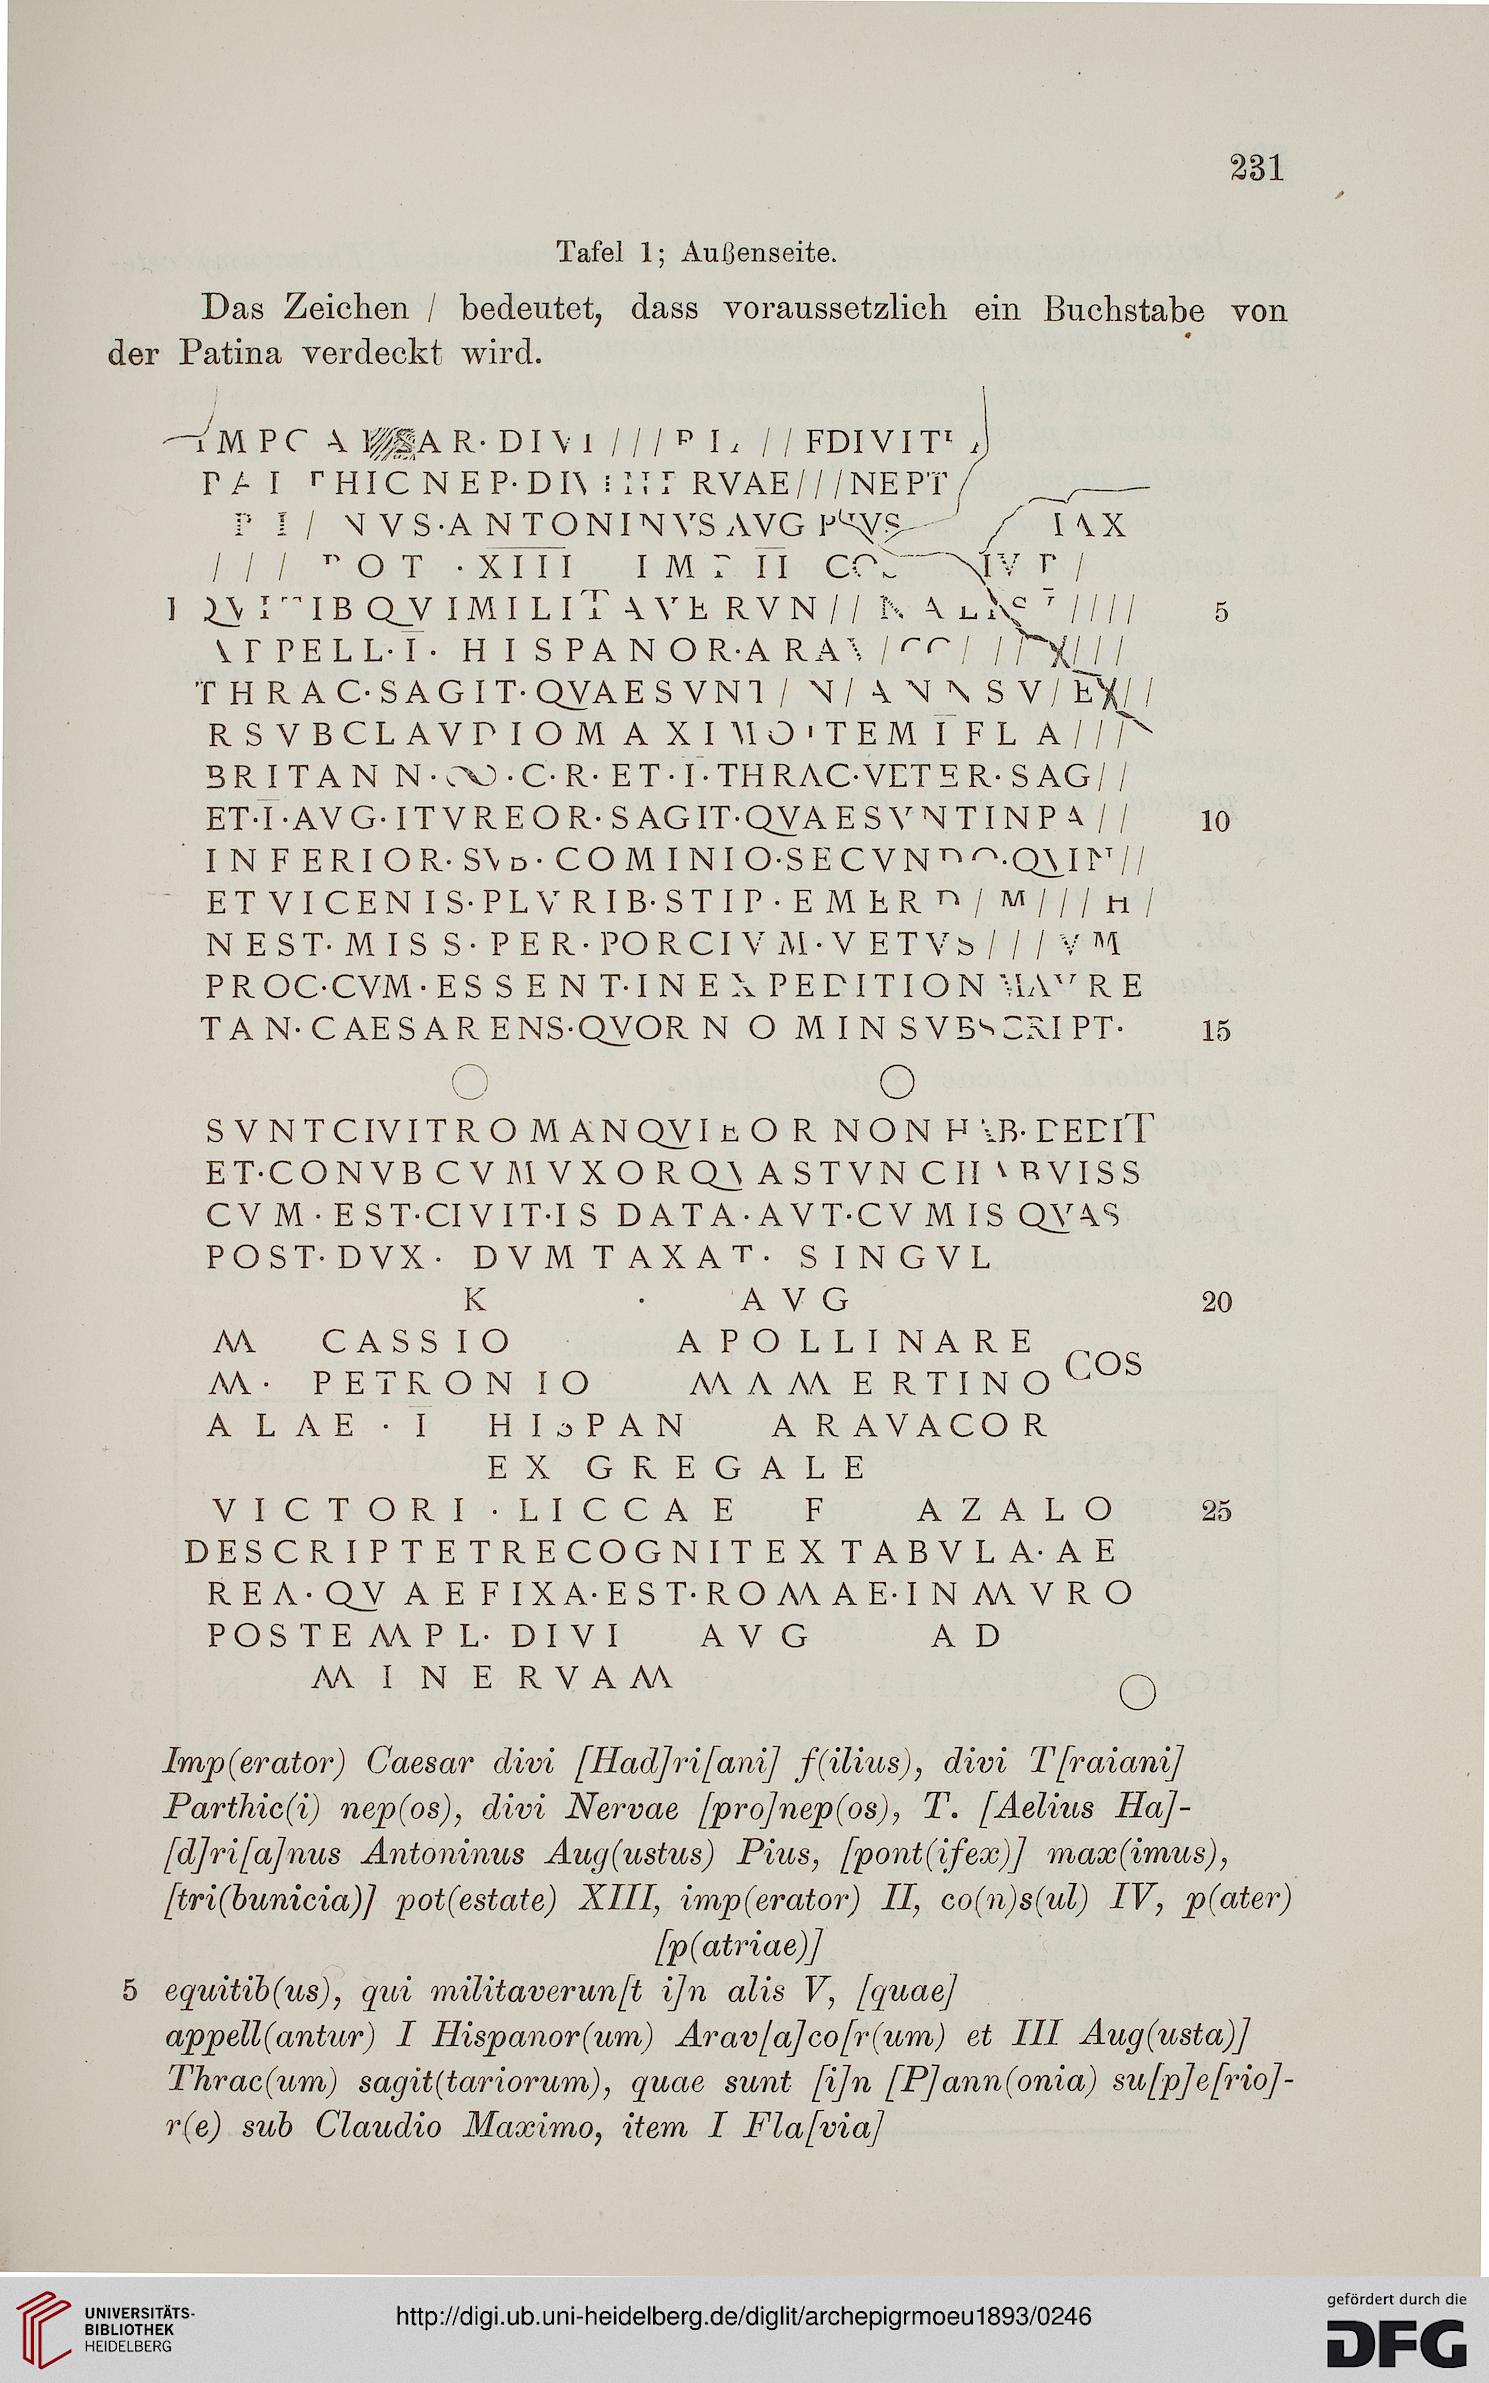 231
Tafel 1; Außenseite.
Das Zeichen / bedeutet, dass voraussetzlich ein Buchstabe von
der Patina verdeckt wird.
IMPC AR· DIVI /// // FDIVIT
THICNEP·DIV RVAE///NEPT
NVS·ANTONINVS AVG PIVS IAX
/// POT ·XIII IMP II /
IB QVIMILITAVERVN// //// 5
APPELL·I· HISPANOR·ARAV
THRAC·SAGIT·QVAESVNT / N/ ANN SV/EX//
RSVBCLAVDIOMAXIMOITEMIFLA///
BRITANN·∞·C·R·ET·I·THRAC·VETER·SAG//
ET·I·AVG·ITVREOR·SAGIT·QVAESVNTINPA// 10
INFERIOR·SVB·COMINIO·SECVNDO·QVIN//
ETVICENIS·PLVRIB·STIP·EMER D/M///H/
NEST·MISS·PER·PORCIVM·VETVS///VM
PROC·CVM·ESSENT·INEXPEDITION MAVRE
TAN·CAESARENS·QVORNOMINSVBSCRIPT· 15
SVNTCIVITROMANQVIEORNONHAB·DEDIT
ET·CONVBCVMVXORQVASTVNCHABVISS
CVM·EST·CIVIT·IS DATA·AVT·CVMISQVAS
POST·DVX· DVMTAXAT· SINGVL
K · AVG 20
M CASSIO APOLLINARE
M· PETRONIO MAMERTINO COS
ALAE · I HISPAN ARAVACOR
EX GREGALE
VICTORI · LICCAE F AZALO 25
DESCRIPTETRECOGNITEXTABVLA·AE
REA·QVAEFIXA·EST·ROMAE·INMVRO
POSTEMPL·DIVI AVG AD
MINERVAM
Imp(erator) Caesar divi [Had]ri[ani] f(ilius), divi T[raiani]
Parthic(i) nep(os), divi Nervae [pro]nep(os), T. [Aelius Ha]-
[d]ri[a]nus Antoninus Aug(ustus) Pius, [pont(ifex)] max(imus),
[tri(bunicia)] pot(estate) XIII, imp(erator) II, co(n)s(ul) IV, p(ater)
[p(atriae)]
5 equitib(us), qui militaverun[t i]n alis V, [quae]
appell(antur) I Hispanor(um) Arav[a]co[r(um) et III Aug(usta)]
Thrac(um) sagit(tariorum), quae sunt [i]n [P]ann(onia) su[p]e[rio]-
r(e) sub Claudio Maximo, item I Fla[via]
UNIVERSITÄTS-
BIBLIOTHEK
HEIDELBERG
http://digi.ub.uni-heidelberg.de/diglit/archepigrmoeu1893/0246
gefördert durch die
DFG